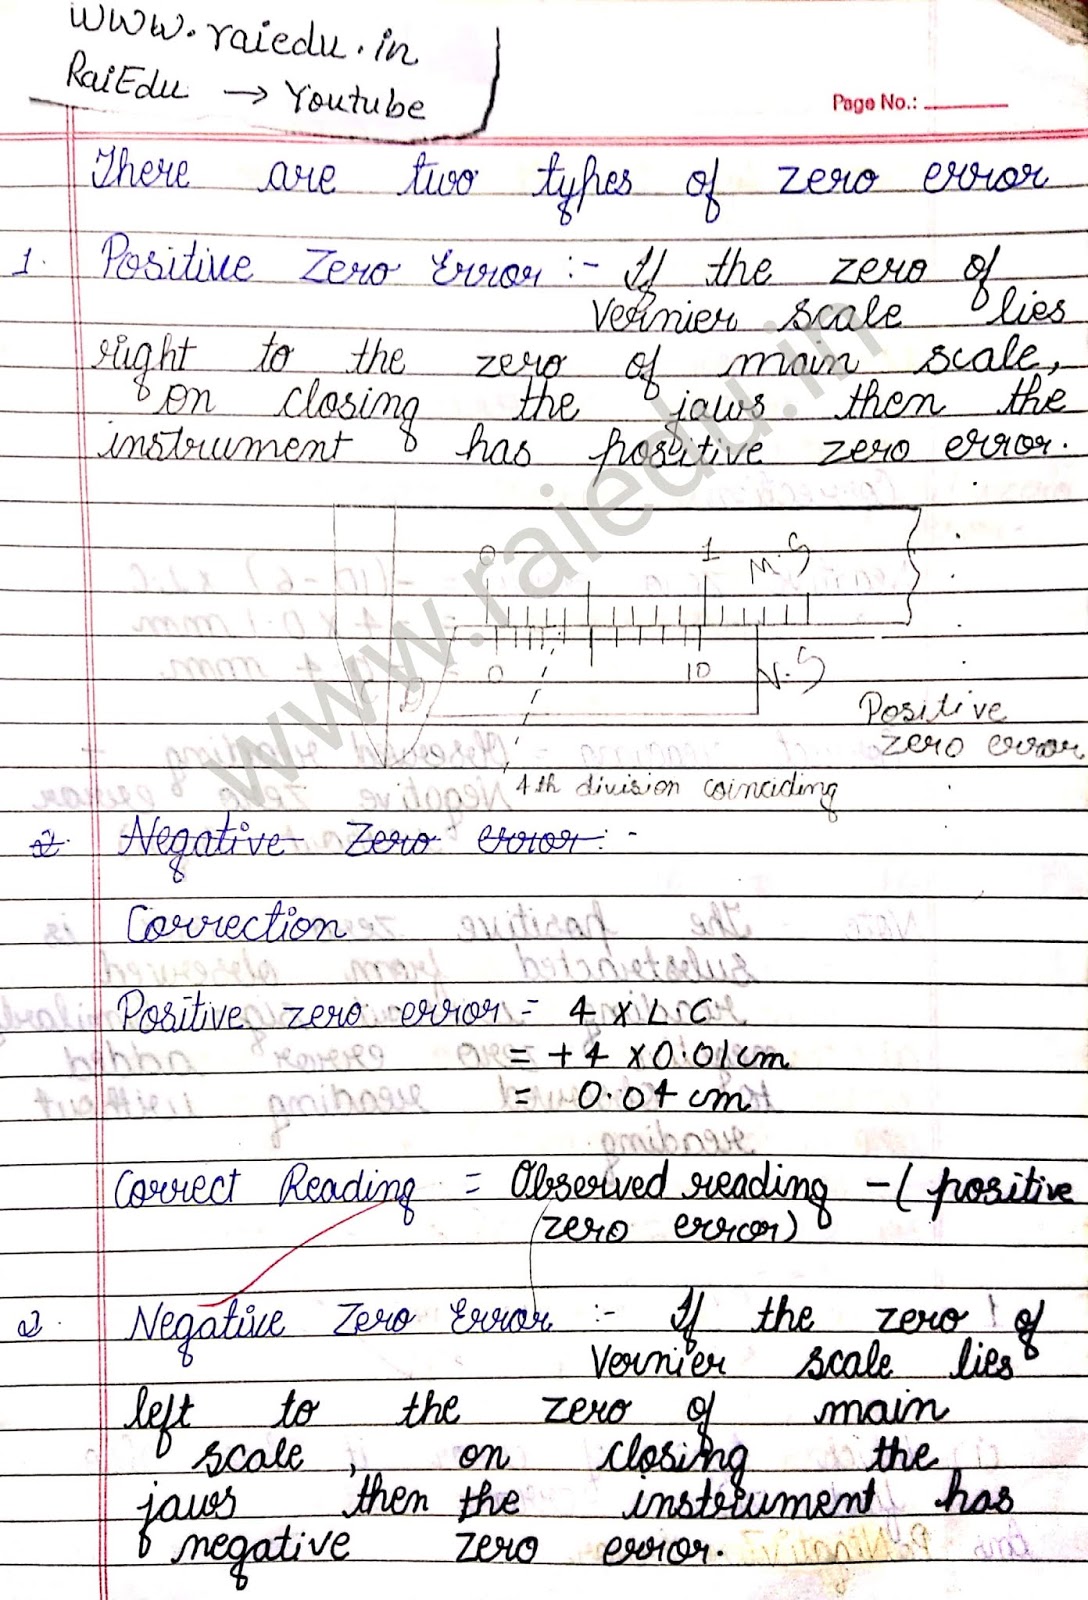 www.raiedu.in
RaiEdu → Youtube
Page No.:
There are two types of zero error
1. Positive Zero Error :- If the zero of
Vernier scale lies
right to the zero of main scale,
on closing the jaws then the
instrument has positive zero error.
0 1 M.S
0 10 V.S
Positive
zero error
4th division coinciding
2. Negative Zero error :-
Correction
Positive zero error = 4 x L.C
= +4 x 0.01cm
= 0.04 cm
Correct Reading = Observed reading - (positive
zero error)
2. Negative Zero Error :- If the zero of
Vernier scale lies
left to the zero of main
scale, on closing the
jaws then the instrument has
negative zero error.
www.raiedu.in